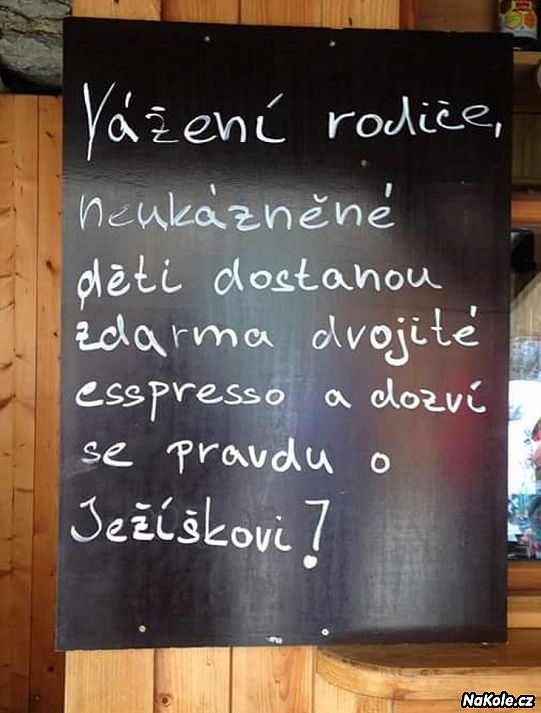 Vážení rodiče,
neukázněné
děti dostanou
zdarma dvojité
esspresso a dozví
se pravdu o
Ježíškovi!
NaKole.cz